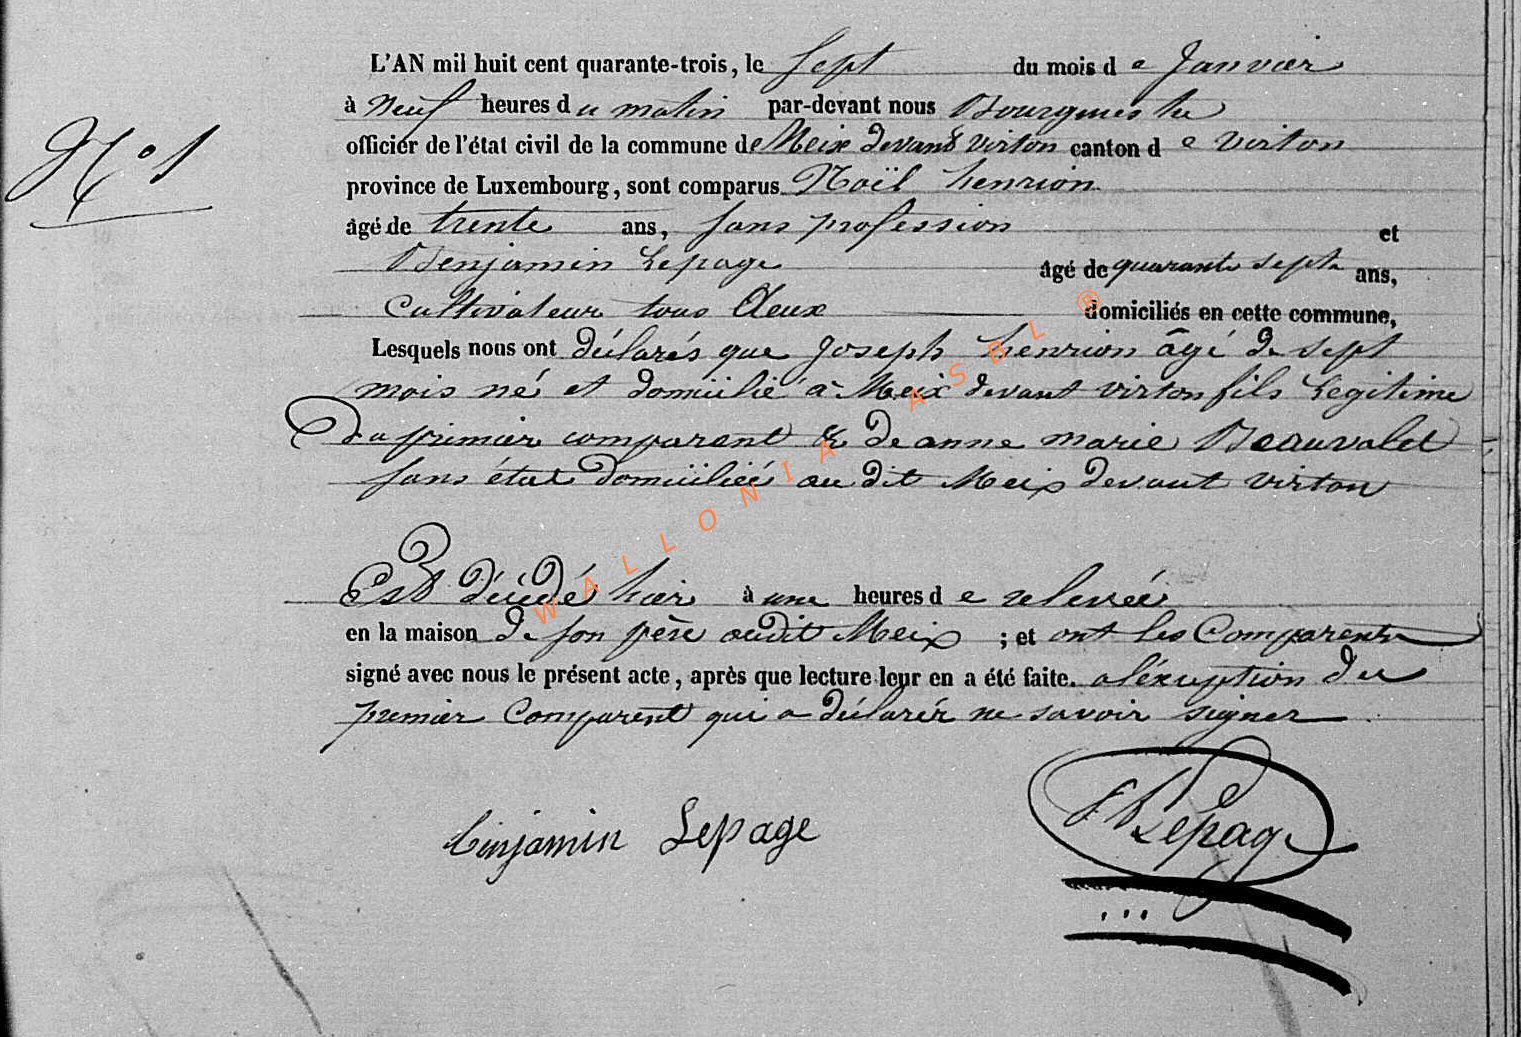 L'AN mil huit cent quarante-trois, le sept du mois de Janvier
N° 1
à neuf heures du matin par-devant nous Bourgmestre
officier de l'état civil de la commune de Meix devant virton canton de virton
province de Luxembourg, sont comparus Noël henrion
âgé de trente ans, sans profession et
Benjamin Lepage âgé de quarante sept ans,
Cultivateur tous deux domiciliés en cette commune,
Lesquels nous ont déclarés que Joseph henrion âgé de sept
mois né et domicilié à Meix devant virton fils Legitime
Du primier comparant & de anne marie Beauvalet
sans état domiciliée au dit Meix devant virton
Est décédé hier à une heures de relevée
en la maison de son père audit Meix ; et ont les Comparents
signé avec nous le présent acte, après que lecture leur en a été faite. a léxception du
premier Comparent qui a déclarér ne savoir signer
binjamin Lepage
Lepage
WALLONIA ASBL ®